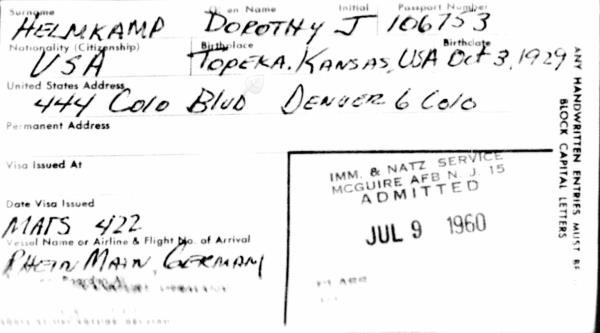 Surname Given Name Initial Passport Number
HELMKAMP DOROTHY J 106753
Nationality (Citizenship) Birthplace Birthdate
USA TOPEKA, KANSAS, USA Oct 3, 1929
United States Address
444 Colo Blvd DENVER 6 Colo
Permanent Address
Visa Issued At
Date Visa Issued
MATS 422
Vessel Name or Airline & Flight No. of Arrival
RHEIN MAIN, GERMANY
IMM. & NATZ SERVICE
MCGUIRE AFB N. J. 15
ADMITTED
JUL 9 1960
ANY HANDWRITTEN ENTRIES MUST BE IN
BLOCK CAPITAL LETTERS